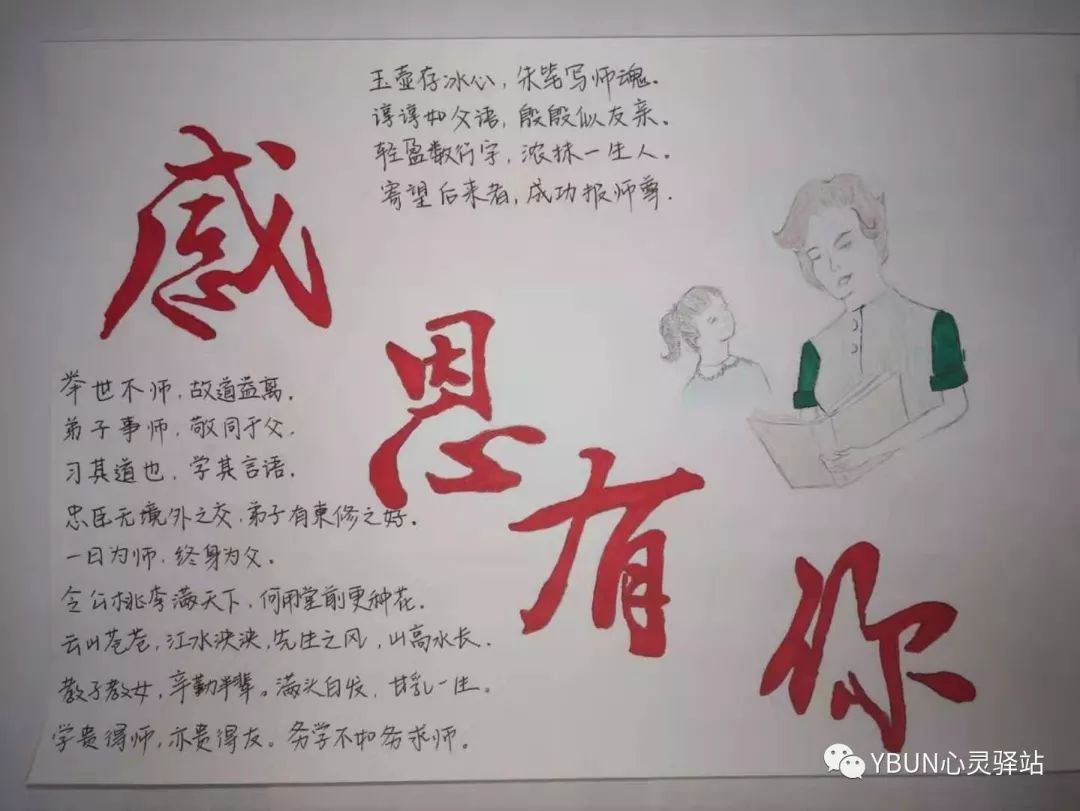 玉壶存冰心，朱笔写师魂。
谆谆如父语，殷殷似友亲。
轻盈数行字，浓抹一生人。
寄望后来者，成功报师尊.
感恩有你
举世不师，故道益离。
弟子事师，敬同于父.
习其道也，学其言语.
忠臣无境外之交，弟子有束修之好.
一日为师，终身为父。
令公桃李满天下，何用堂前更种花.
云山苍苍，江水泱泱，先生之风，山高水长.
教子教女，辛勤半辈。满头白发，甘乳一生。
学贵得师，亦贵得友。务学不如务求师。
YBUN心灵驿站